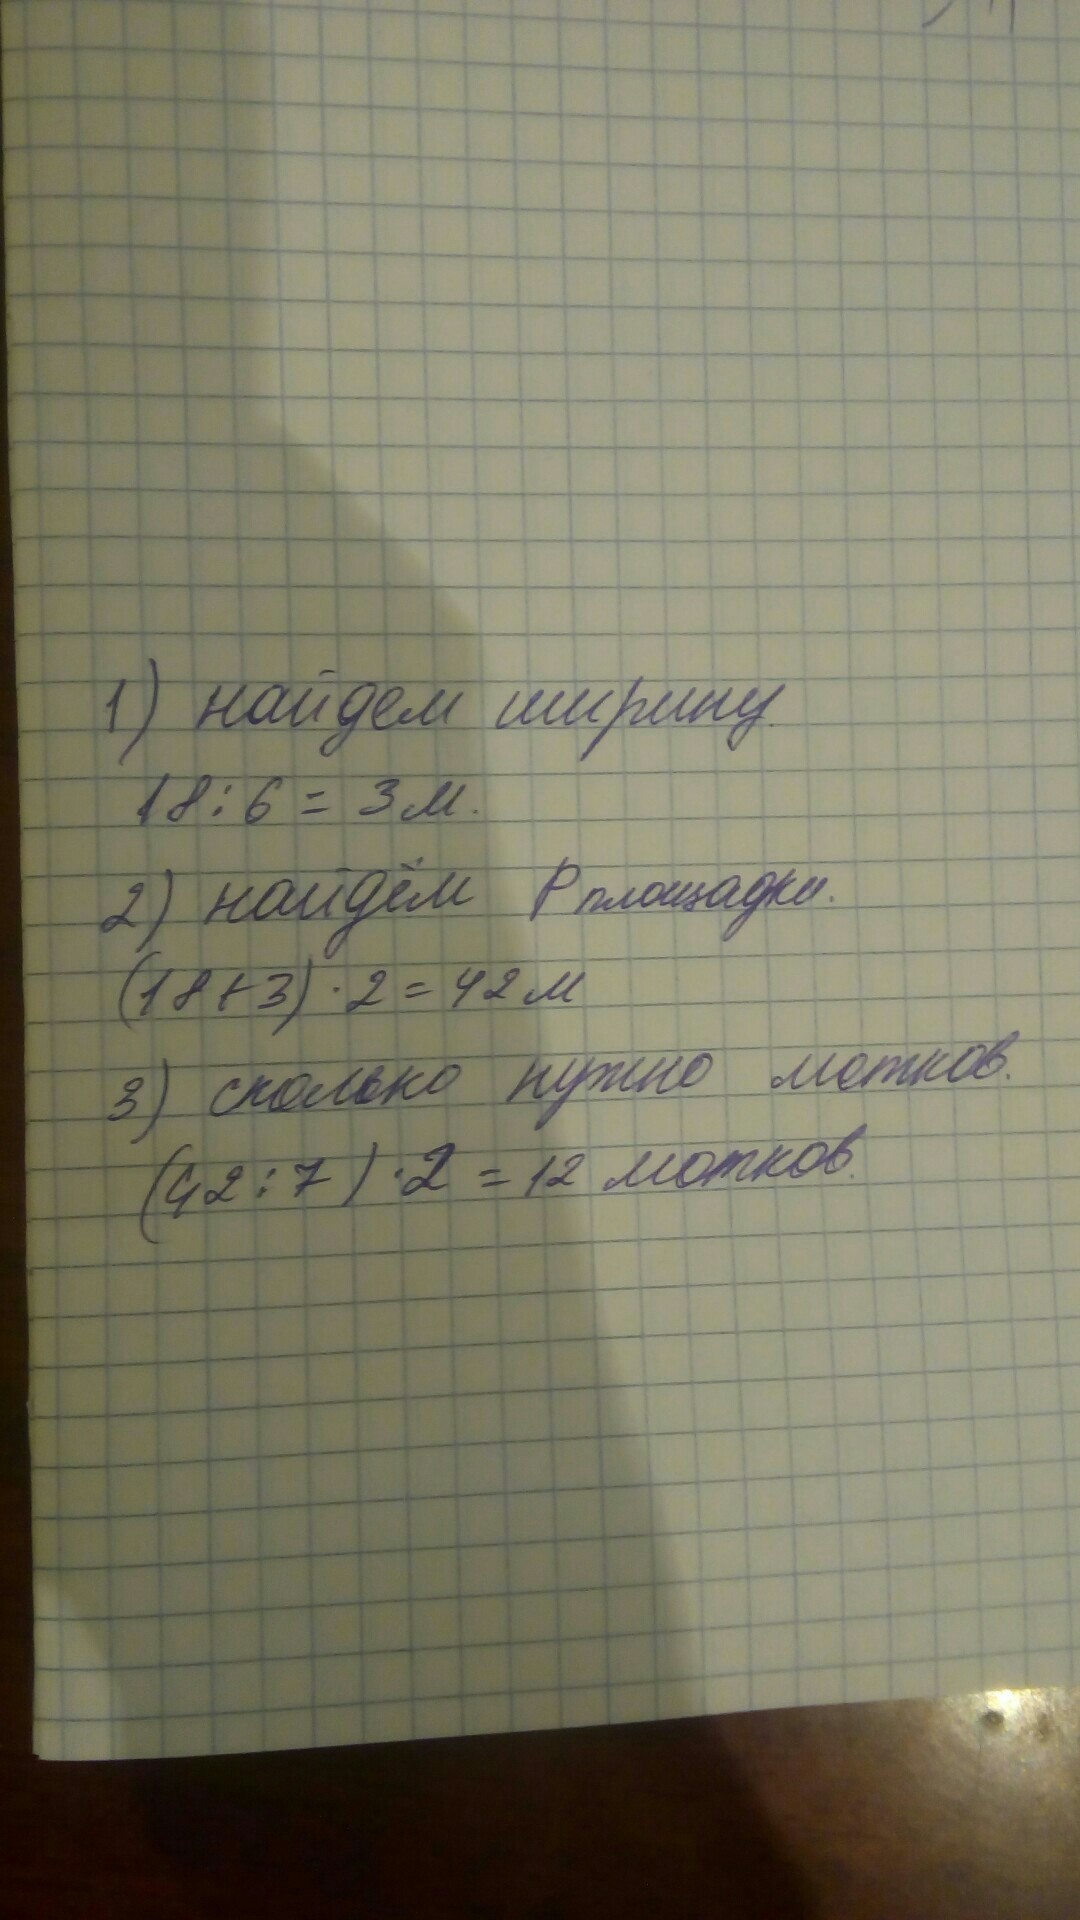 1) найдем ширину.
18:6 = 3 м.
2) найдём P площадки.
(18+3)·2=42 м
3) сколько нужно мотков.
(42:7)·2 = 12 мотков.